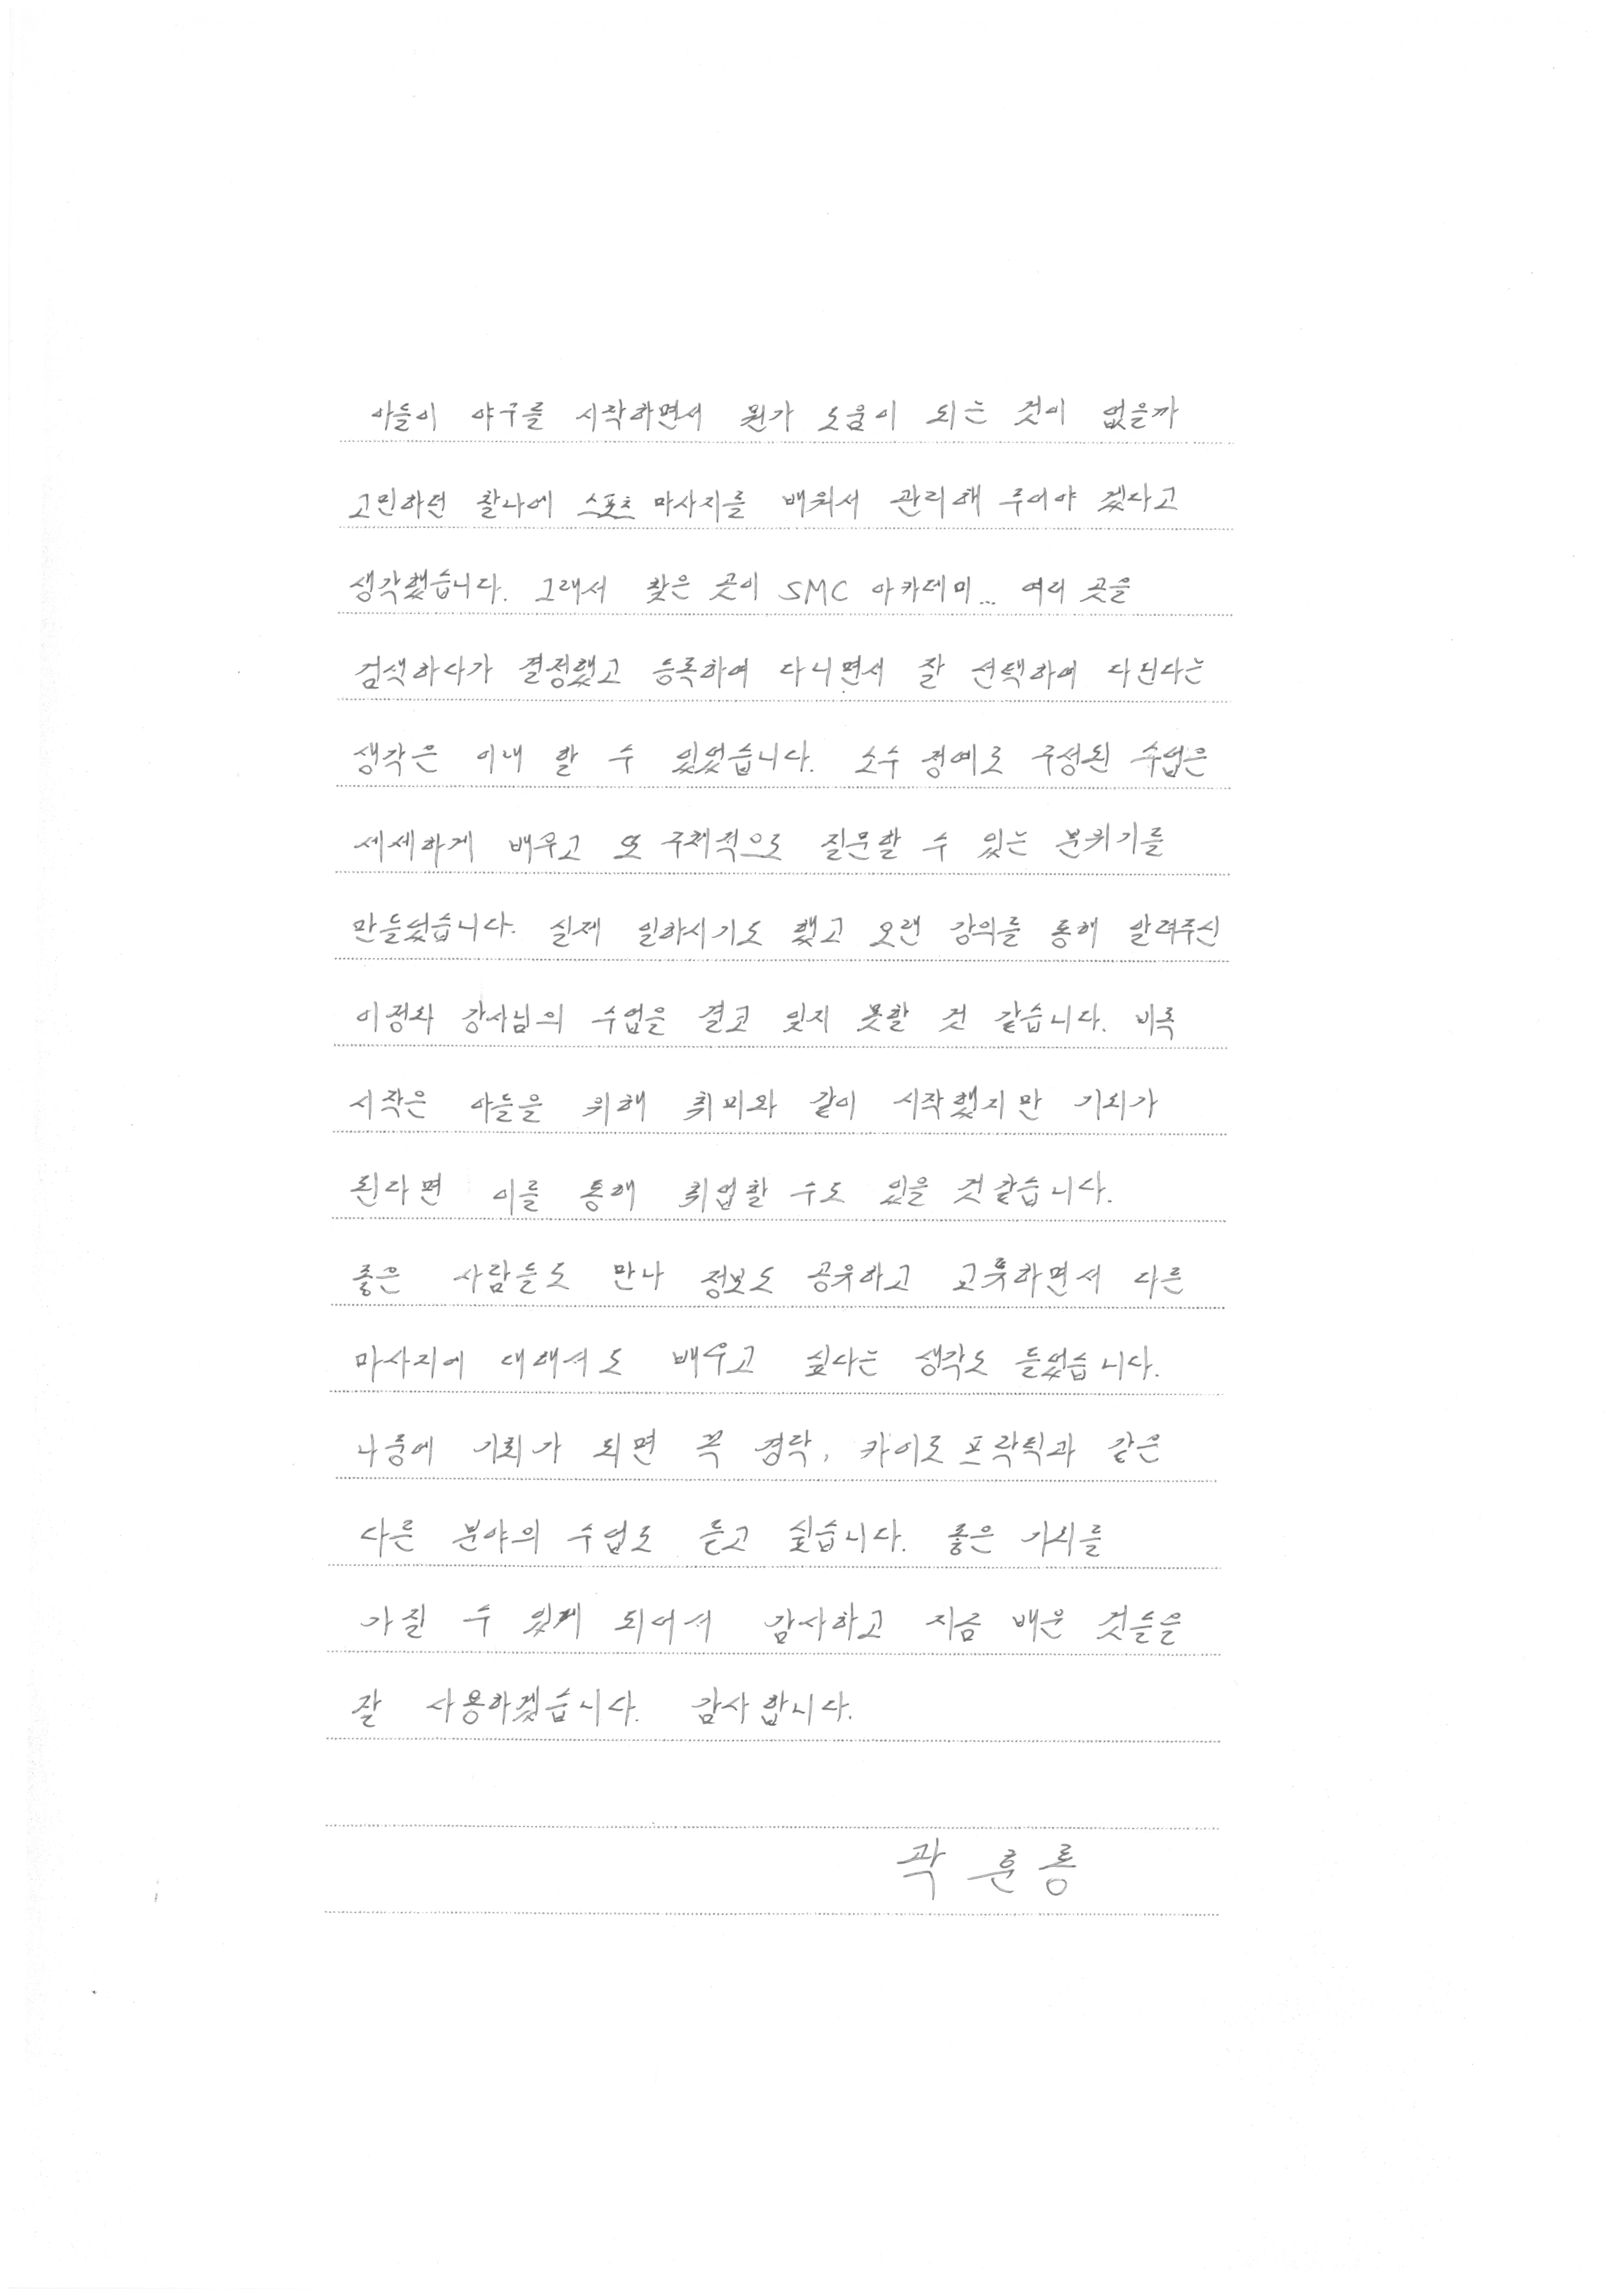 아들이 야구를 시작하면서 뭔가 도움이 되는 것이 없을까
고민하던 찰나에 스포츠 마사지를 배워서 관리해 주어야 겠다고
생각했습니다. 그래서 찾은 곳이 SMC 아카데미... 여러 곳을
검색하다가 결정했고 등록하여 다니면서 잘 선택하여 다닌다는
생각은 이내 할 수 있었습니다. 소수 정예로 구성된 수업은
세세하게 배우고 또 구체적으로 질문할 수 있는 분위기를
만들었습니다. 실제 일하시기도 했고 오랜 강의를 통해 알려주신
이정화 강사님의 수업을 결코 잊지 못할 것 같습니다. 비록
시작은 아들을 위해 취미와 같이 시작했지만 기회가
된다면 이를 통해 취업할 수도 있을 것 같습니다.
좋은 사람들도 만나 정보도 공유하고 교류하면서 다른
마사지에 대해서도 배우고 싶다는 생각도 들었습니다.
나중에 기회가 되면 꼭 경락, 카이로프락틱과 같은
다른 분야의 수업도 듣고 싶습니다. 좋은 기회를
가질 수 있게 되어서 감사하고 지금 배운 것들을
잘 사용하겠습니다. 감사합니다.
곽 훈 룡